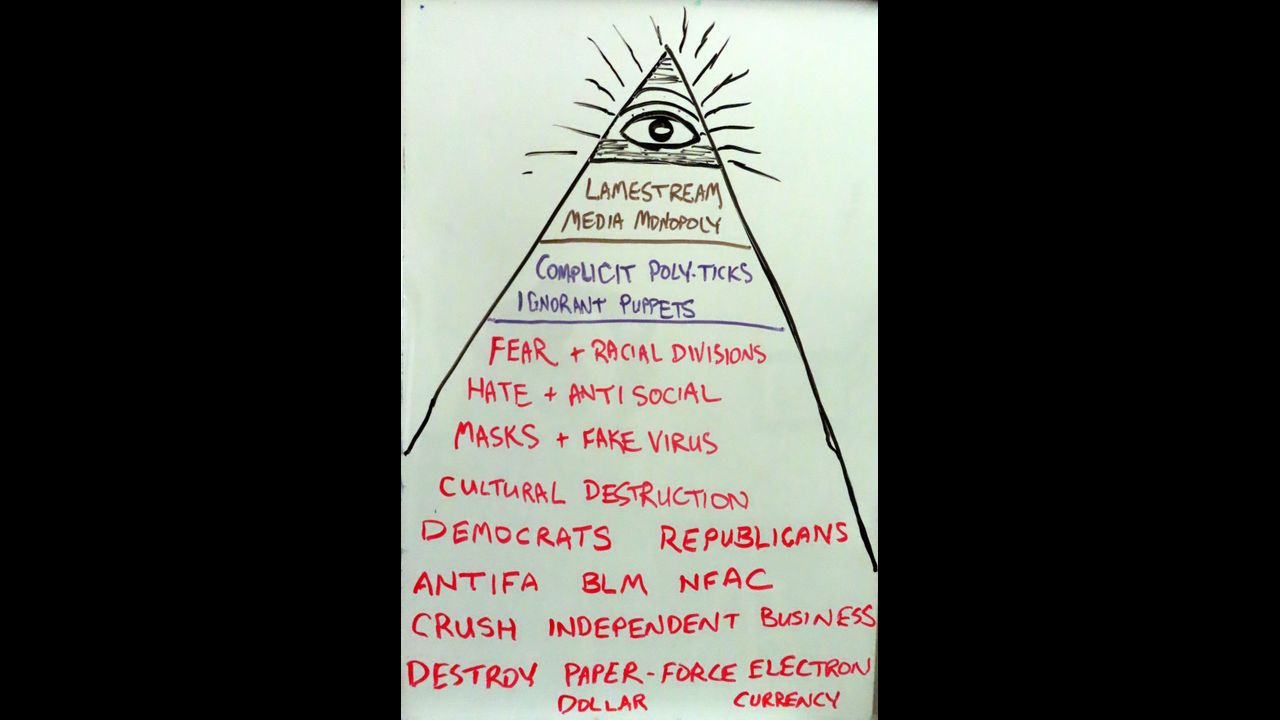 LAMESTREAM
MEDIA MONOPOLY
COMPLICIT POLY-TICKS
IGNORANT PUPPETS
FEAR + RACIAL DIVISIONS
HATE + ANTISOCIAL
MASKS + FAKE VIRUS
CULTURAL DESTRUCTION
DEMOCRATS REPUBLICANS
ANTIFA BLM NFAC
CRUSH INDEPENDENT BUSINESS
DESTROY PAPER-FORCE ELECTRON
DOLLAR CURRENCY